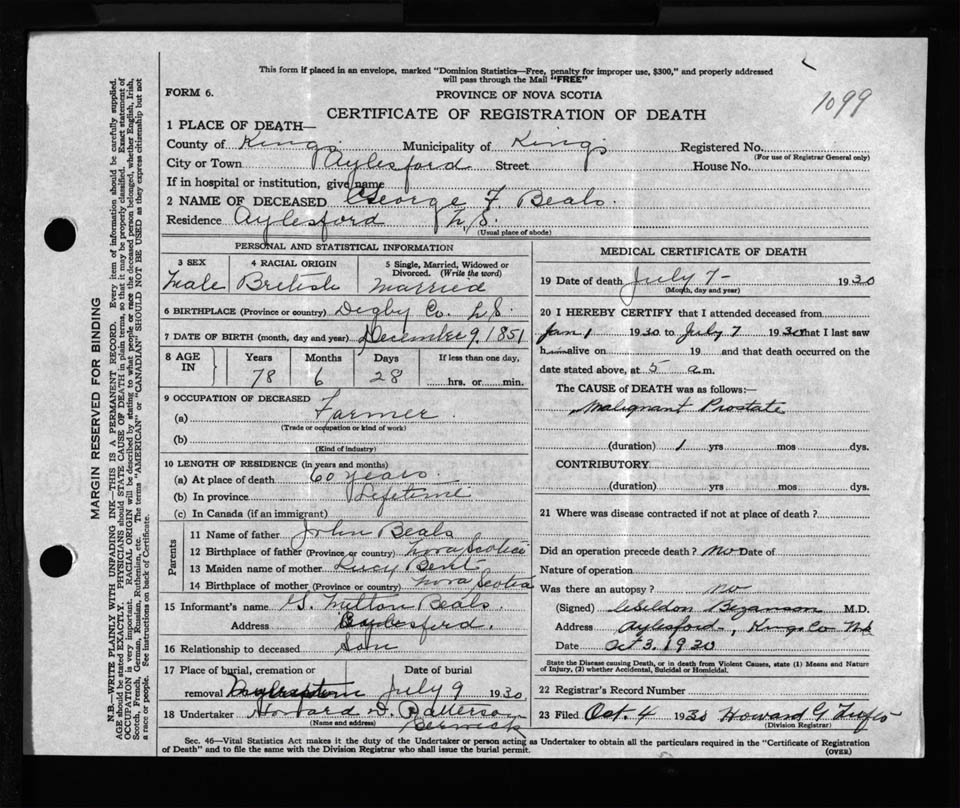 This form if placed in an envelope, marked "Dominion Statistics—Free, penalty for improper use, $300," and properly addressed
will pass through the Mail "FREE"
FORM 6.
PROVINCE OF NOVA SCOTIA
1099
CERTIFICATE OF REGISTRATION OF DEATH
1 PLACE OF DEATH—
County of Kings Municipality of Kings Registered No.
(For use of Registrar General only)
City or Town Aylesford Street House No.
If in hospital or institution, give name
2 NAME OF DECEASED George F Beals.
Residence Aylesford N.S.
(Usual place of abode)
PERSONAL AND STATISTICAL INFORMATION
3 SEX 4 RACIAL ORIGIN 5 Single, Married, Widowed or
Divorced. (Write the word)
Male British Married
6 BIRTHPLACE (Province or country) Digby Co. N.S.
7 DATE OF BIRTH (month, day and year) December 9, 1851
8 AGE IN Years Months Days If less than one day,
78 6 28 hrs. or min.
9 OCCUPATION OF DECEASED
(a) Farmer.
(Trade or occupation or kind of work)
(b)
(Kind of industry)
10 LENGTH OF RESIDENCE (in years and months)
(a) At place of death 60 years.
(b) In province Lifetime
(c) In Canada (if an immigrant)
Parents
11 Name of father John Beals
12 Birthplace of father (Province or country) Nova Scotia
13 Maiden name of mother Lucy Bent.
14 Birthplace of mother (Province or country) Nova Scotia
15 Informant's name G. Milton Beals.
Address Aylesford.
16 Relationship to deceased Son
17 Place of burial, cremation or Date of burial
removal July 9 1930
18 Undertaker Howard D. Patterson
(Name and address) Berwick
MEDICAL CERTIFICATE OF DEATH
19 Date of death July 7- 1930
(Month, day and year)
20 I HEREBY CERTIFY that I attended deceased from
Jan 1 1930 to July 7 1930 that I last saw
him alive on 19 and that death occurred on the
date stated above, at 5 a.m.
The CAUSE OF DEATH was as follows:—
Malignant Prostate
(duration) 1 yrs mos dys.
CONTRIBUTORY
(duration) yrs mos dys.
21 Where was disease contracted if not at place of death?
Did an operation precede death? No Date of
Nature of operation
Was there an autopsy? no
(Signed) Bezanson M.D.
Address Aylesford, Kings Co NS
Date Oct 3. 1930
State the Disease causing Death, or in death from Violent Causes, state (1) Means and Nature
of Injury, (2) whether Accidental, Suicidal or Homicidal.
22 Registrar's Record Number
23 Filed Oct. 4 1930 Howard G
(Division Registrar)
Sec. 46—Vital Statistics Act makes it the duty of the Undertaker or person acting as Undertaker to obtain all the particulars required in the "Certificate of Registration
of Death" and to file the same with the Division Registrar who shall issue the burial permit.
(OVER)
MARGIN RESERVED FOR BINDING
N.B.—WRITE PLAINLY WITH UNFADING INK—THIS IS A PERMANENT RECORD. Every item of information should be carefully supplied.
AGE should be stated EXACTLY. PHYSICIANS should STATE CAUSE OF DEATH in plain terms, so that it may be properly classified. Exact statement of
OCCUPATION is very important. RACIAL ORIGIN will be described by stating to what people or race the deceased person belonged, whether English, Irish,
Scotch, French, German, Russian, Ruthenian, etc. The terms "AMERICAN" or "CANADIAN" SHOULD NOT BE USED as they express citizenship but not
a race or people. See instructions on back of Certificate.